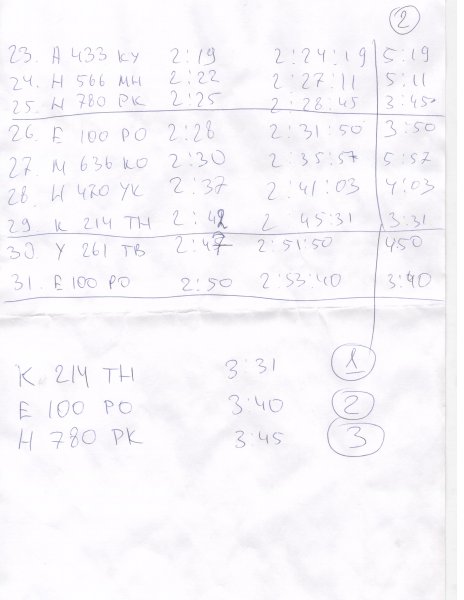 2
23. А 433 КУ 2:19 2:24:19 5:19
24. Н 566 МН 2:22 2:27:11 5:11
25. Н 780 РК 2:25 2:28:45 3:45
26. Е 100 РО 2:28 2:31:50 3:50
27. М 636 КО 2:30 2:35:57 5:57
28. Н 470 УК 2:37 2:41:03 4:03
29. К 214 ТН 2:42 2 45:31 3:31
30. У 261 ТВ 2:47 2:51:50 4:50
31. Е 100 РО 2:50 2:53:40 3:40
К 214 ТН 3:31 1
Е 100 РО 3:40 2
Н 780 РК 3:45 3